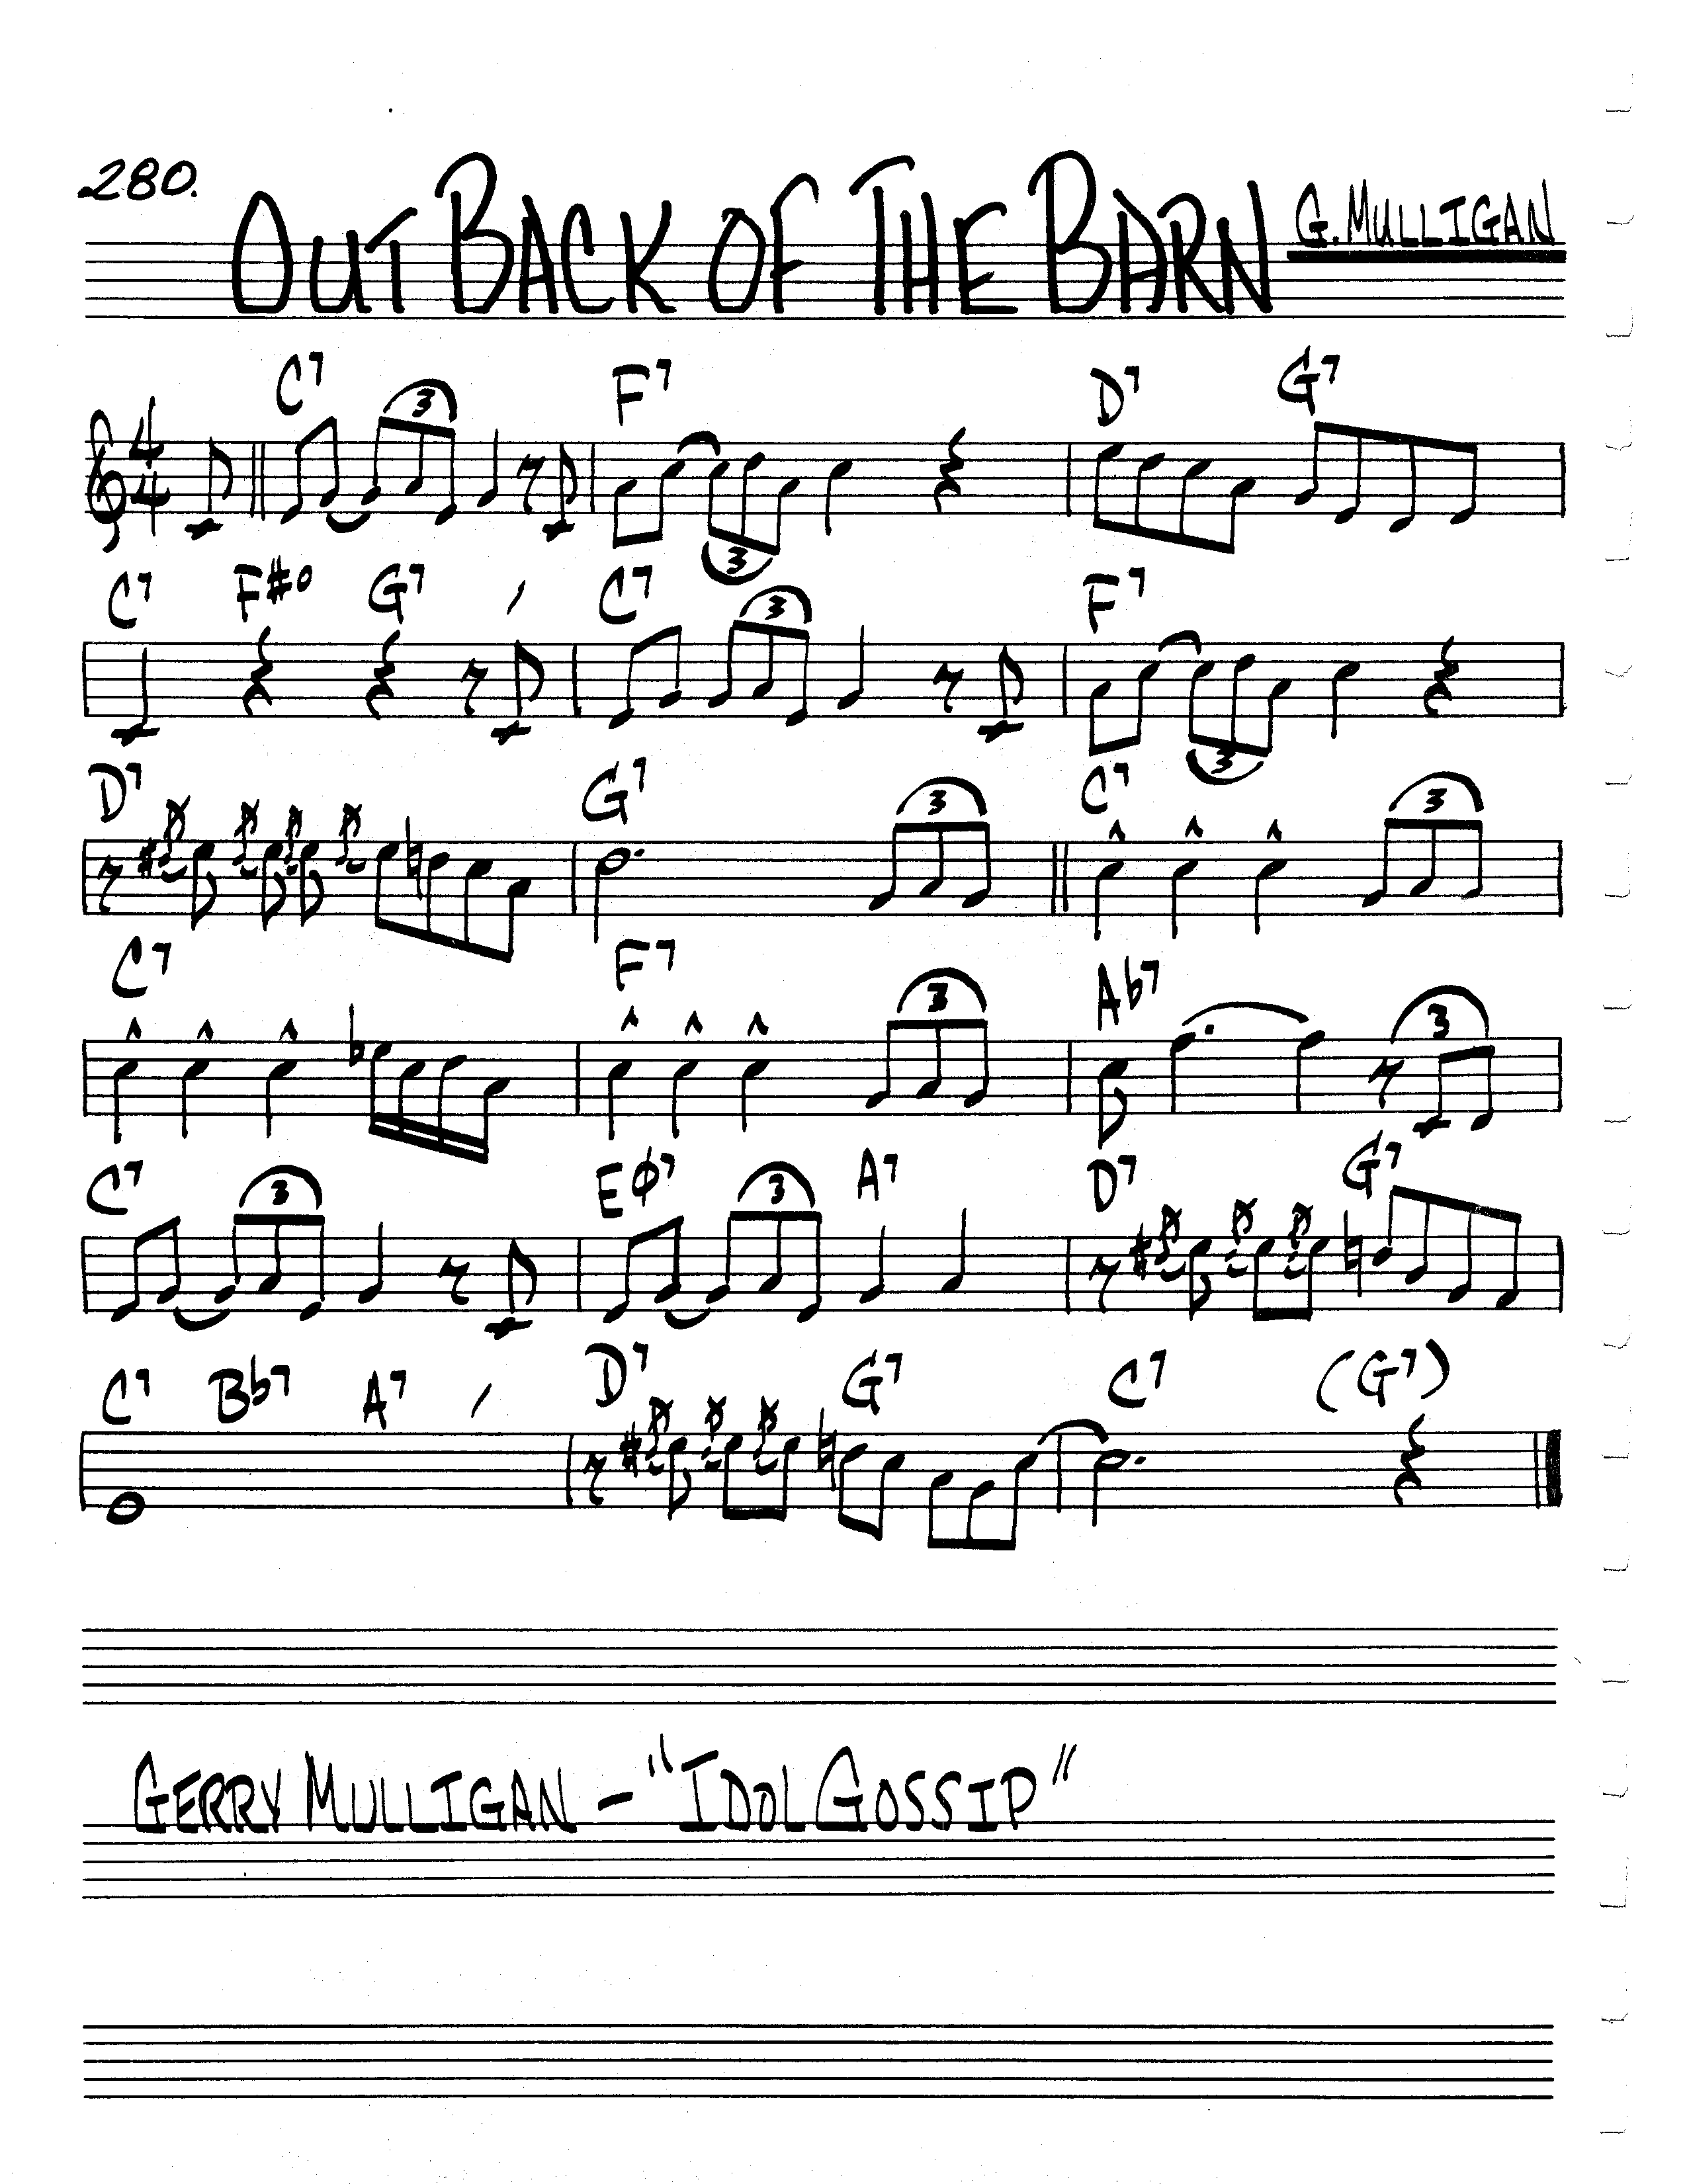 280.
OUT BACK OF THE BARN
G. MULLIGAN
C7 F7 D7 G7
3 3
C7 F#o G7 / C7 F7
3 3
D7 G7 C7
3 3
C7 F7 Ab7
3 3
C7 Eø7 A7 D7 G7
3 3
C7 Bb7 A7 / D7 G7 C7 (G7)
GERRY MULLIGAN – "IDOL GOSSIP"